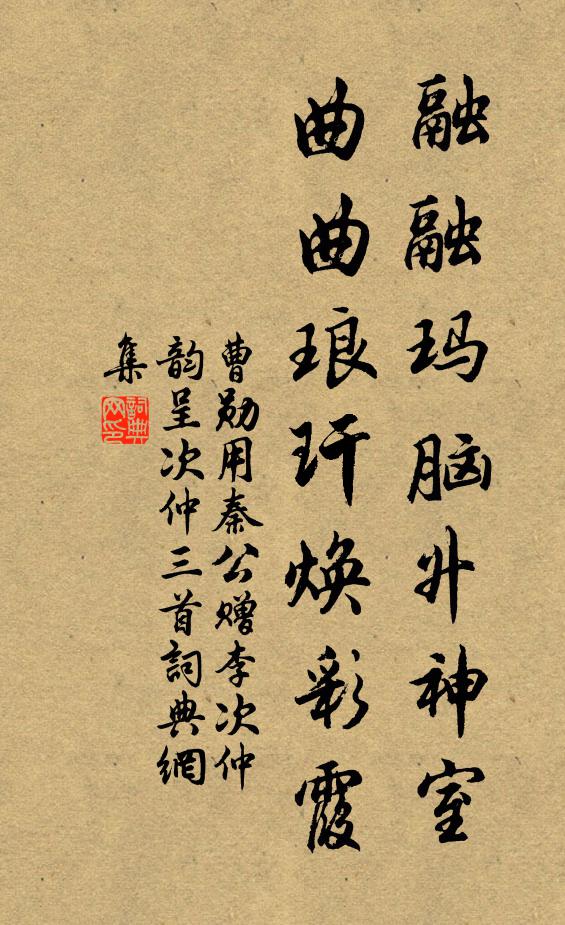 融融玛脑升神室
曲曲琅玕焕彩霞
曹勋用秦公赠李次仲
韵呈次仲三首詞典網
集
詞典
网印